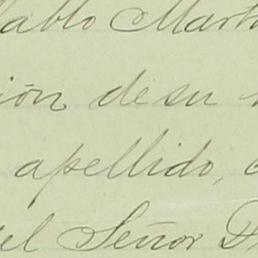 Pablo Mart
ión de su
apellido,
el Señor